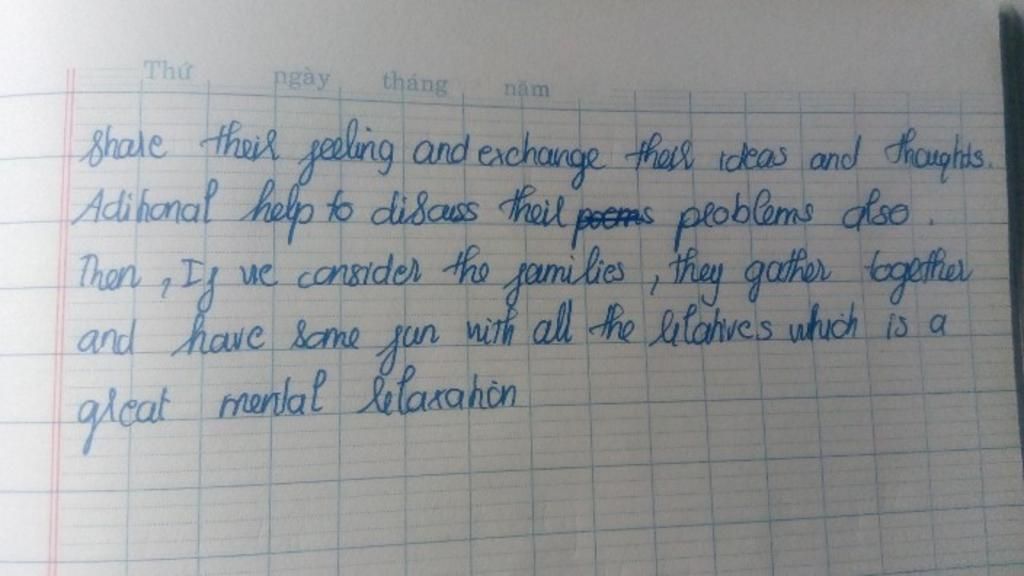 Thứ ngày tháng năm
share their feeling and exchange their ideas and thoughts.
Aditional help to discuss their problems also.
Then, If we consider the families, they gather together
and have some fun with all the relatives which is a
great mental relaxation